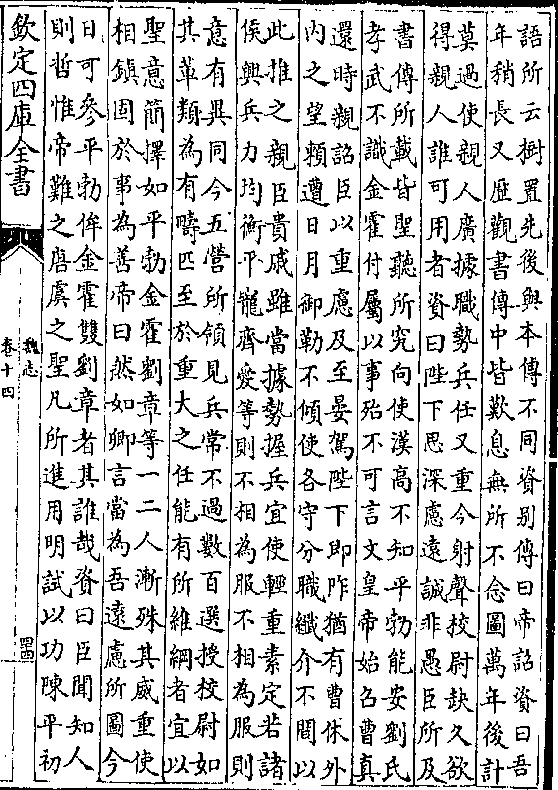 語所云樹置先後與本傳不同資别傳曰帝詔資曰吾
年稍長又歷觀書傳中皆歎息無所不念圖萬年後計
莫過使親人廣據職勢兵任又重今射聲校尉缺久欲
得親人誰可用者資曰陛下思深慮遠誠非愚臣所及
書傳所載皆聖聽所究向使漢高不知平勃能安劉氏
孝武不識金霍付屬以事殆不可言文皇帝始召曹真
還時親詔臣以重慮及至晏駕陛下即阼猶有曹休外
内之望賴遭日月御勒不傾使各守分職纖介不間以
此推之親臣貴戚雖當據勢握兵宜使輕重素定若諸
侯興兵力均衡平寵齊愛等則不相為服不相為服則
意有異同今五營所領見兵常不過數百選授校尉如
其輩類為有疇匹至於重大之任能有所維綱者宜以
聖意簡擇如平勃金霍劉章等一二人漸殊其威重使
相鎮固於事為善帝曰然如卿言當為吾遠慮所圖今
日可參平勃侔金霍雙劉章者其誰哉資曰臣聞知人
則哲惟帝難之唐虞之聖凡所進用明試以功陳平初
欽定四庫全書
魏志
卷十四
四四